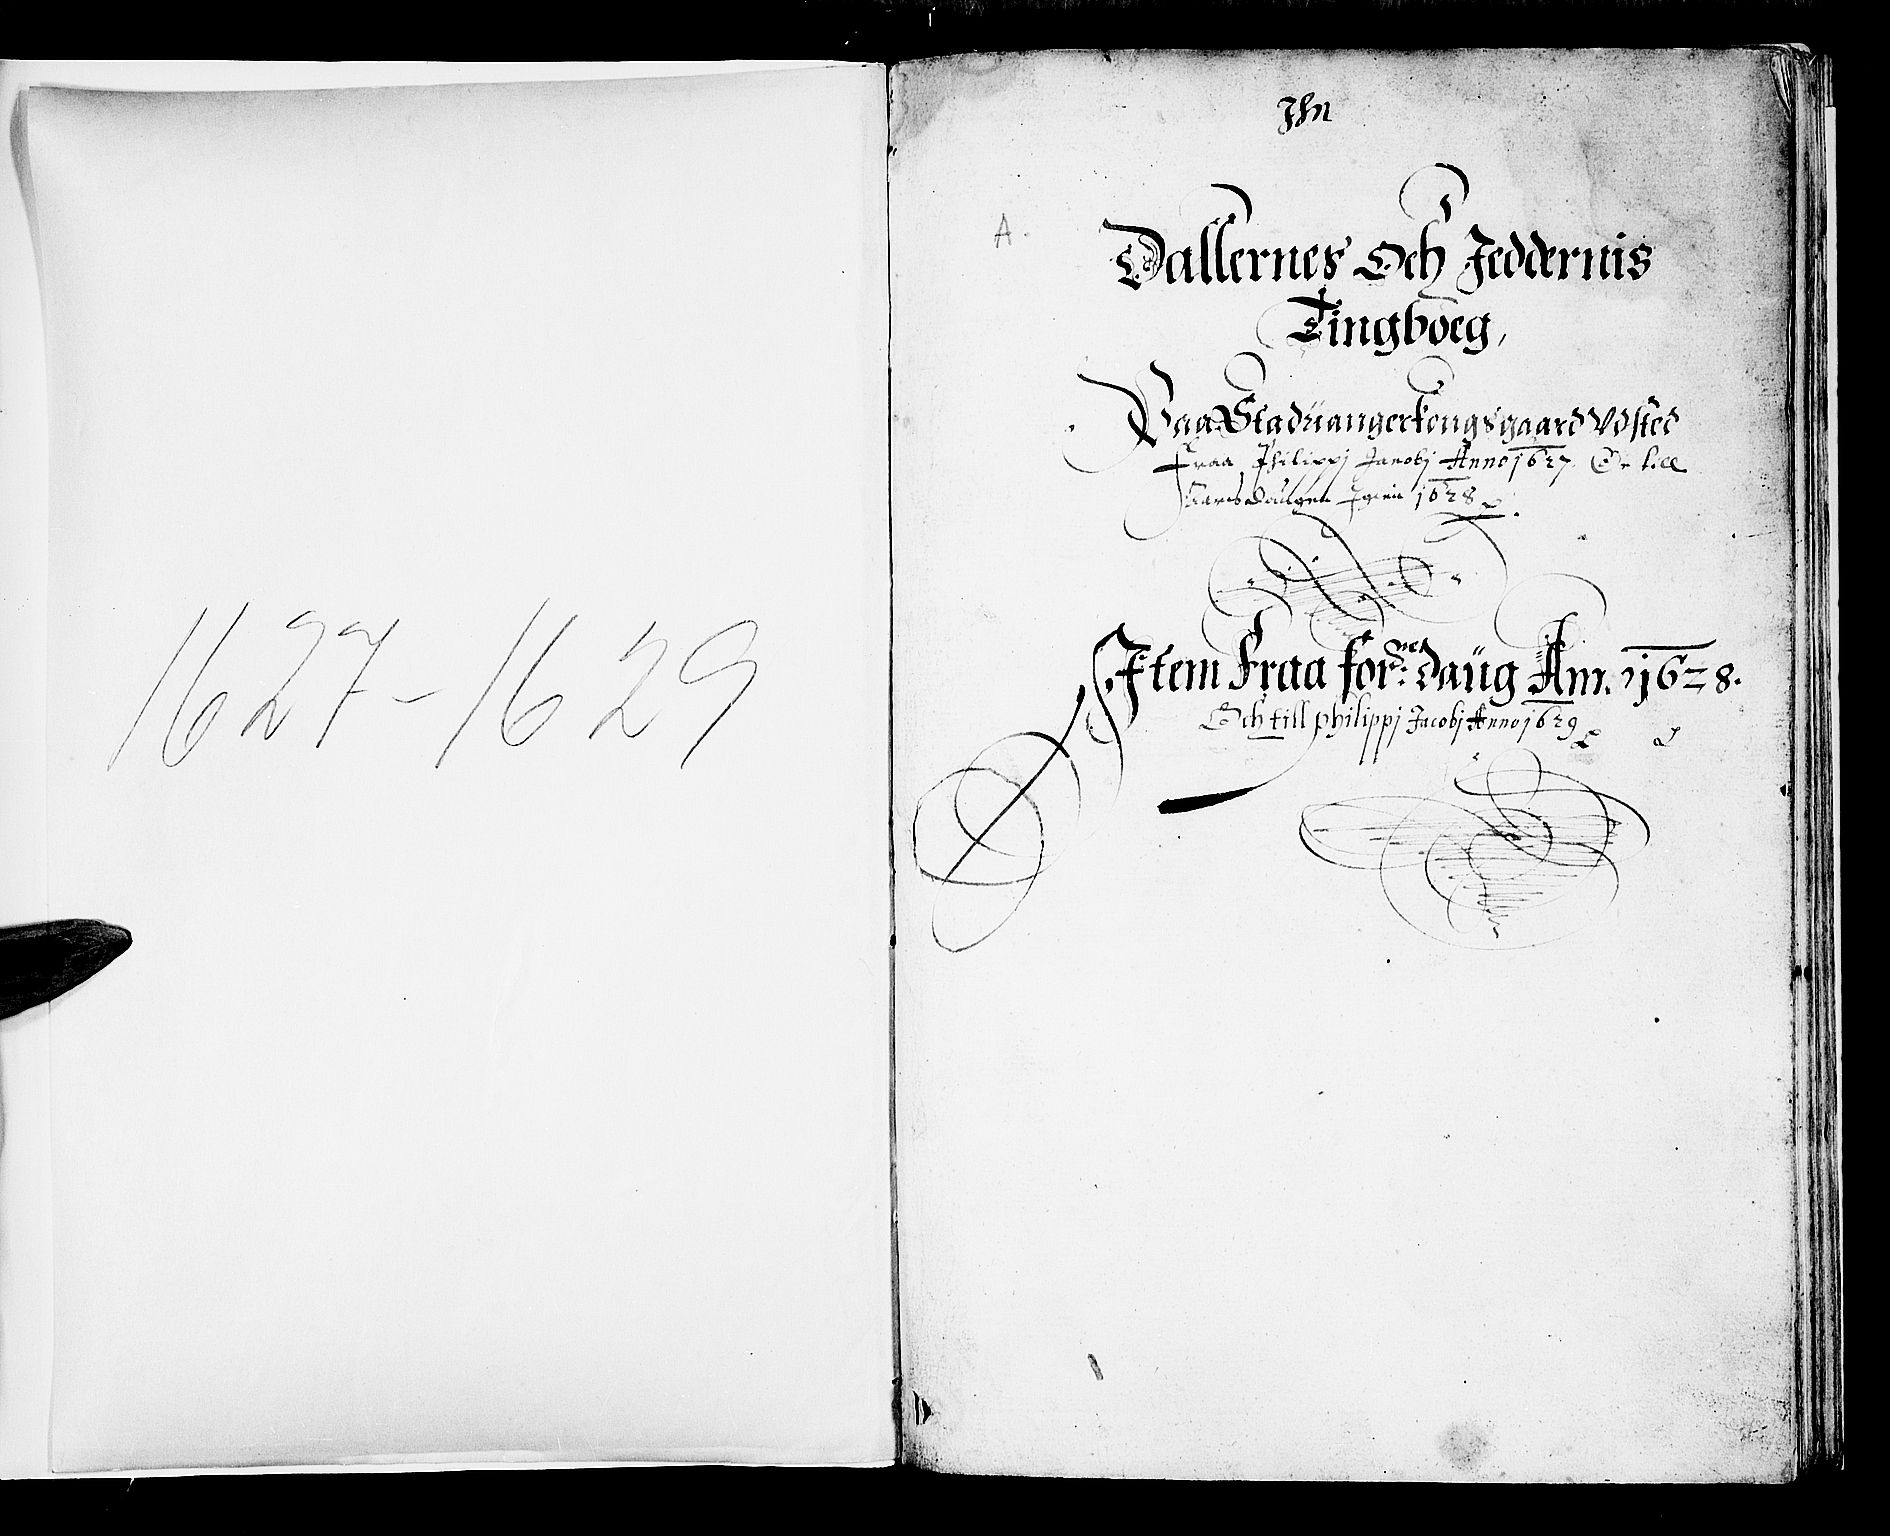 1627-1629
Jhn
A.
Dallernes Och Jeddernis
Tingboeg,
Paa Staduangerkongsgaard Vdsted
Fraa Philippj Jacobj Anno 1627. Oc till
Aarsdaugen Igien 1628
Item Fraa for:ne daug Am. 1628.
Och till philippj Jacobj Anno 1629